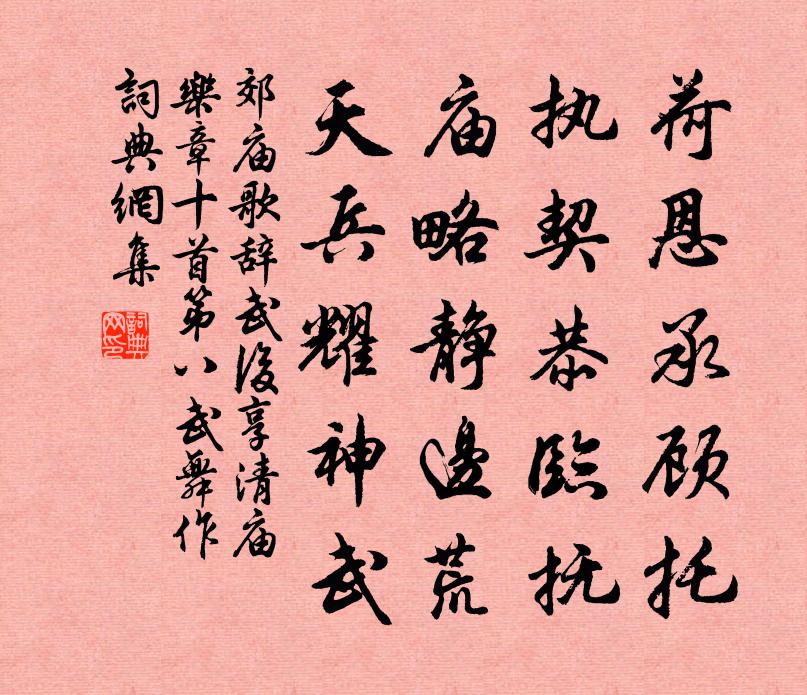 荷恩承顾托
执契恭臨抚
庙略静邊荒
天兵耀神武
郊庙歌辞武後享清庙
樂章十首第八武舞作
詞典網集
詞典网印